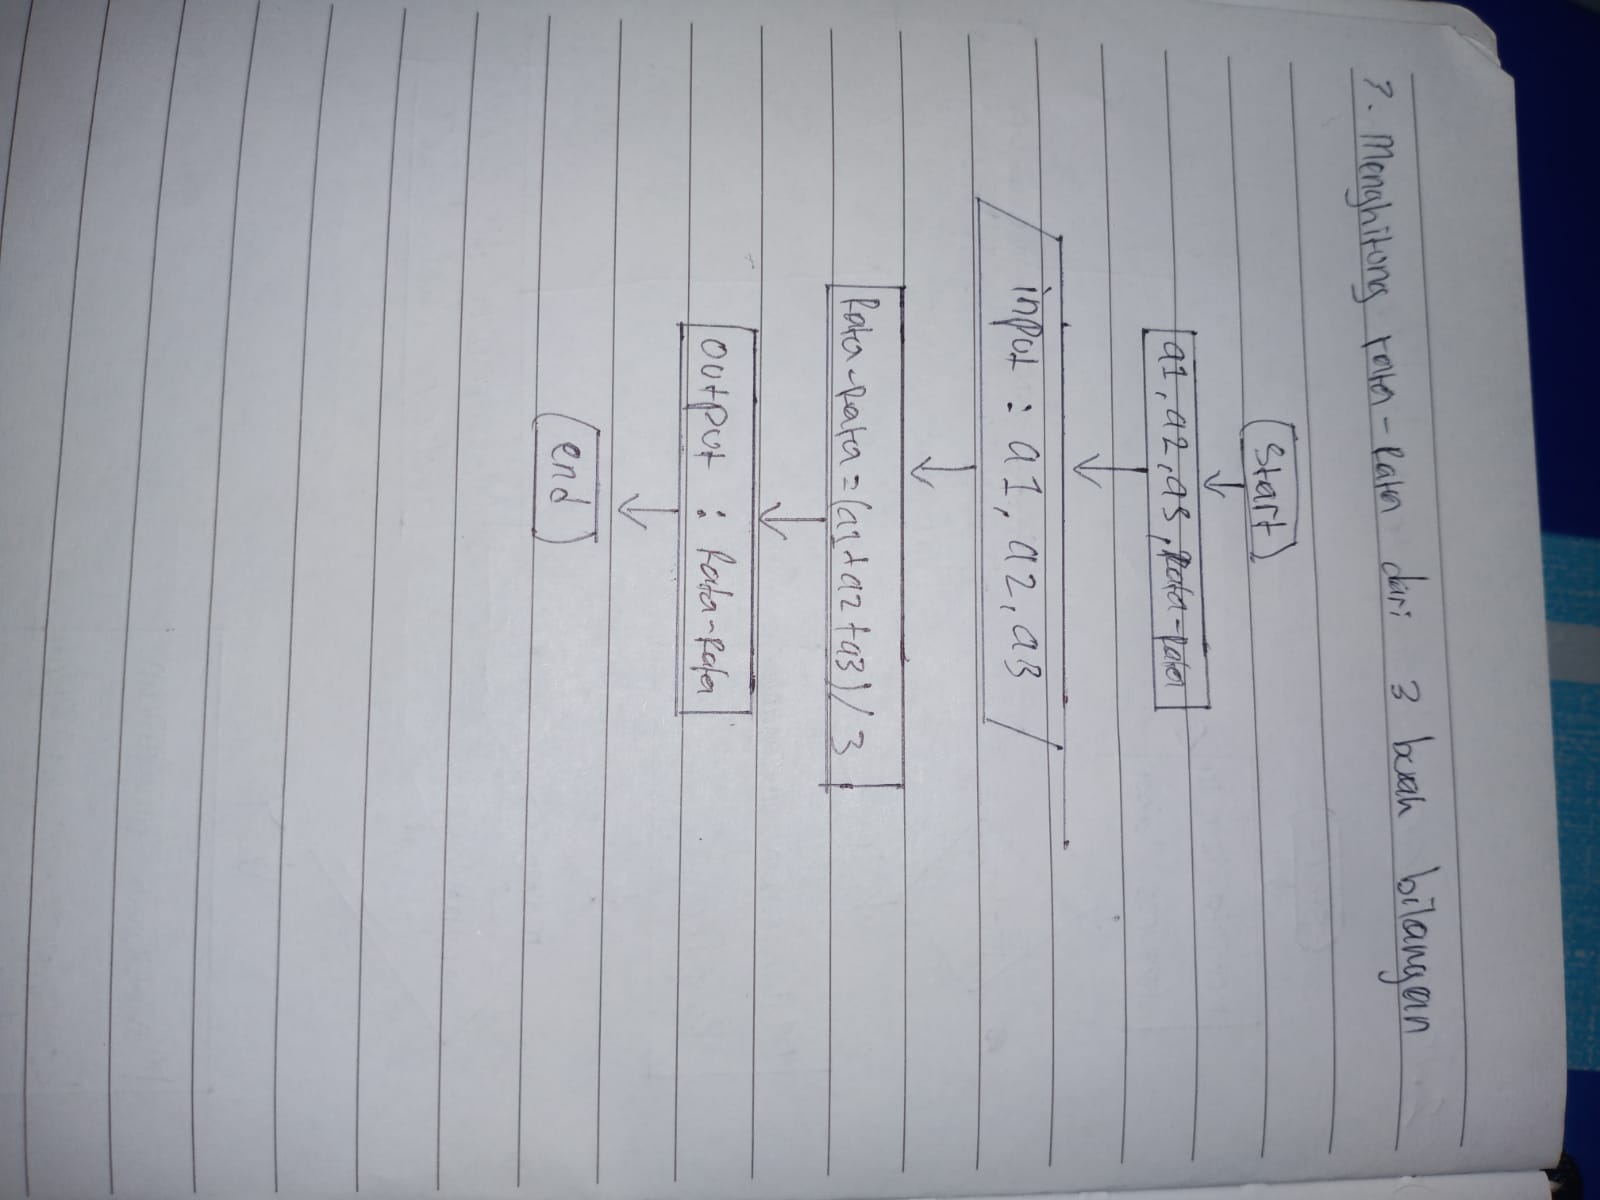 7. Menghitung rata-rata dari 3 buah bilangan
Start
a1, a2, a3, Rata-Rata
input : a1, a2, a3
Rata-Rata = (a1 + a2 + a3) / 3
output : Rata-Rata
end